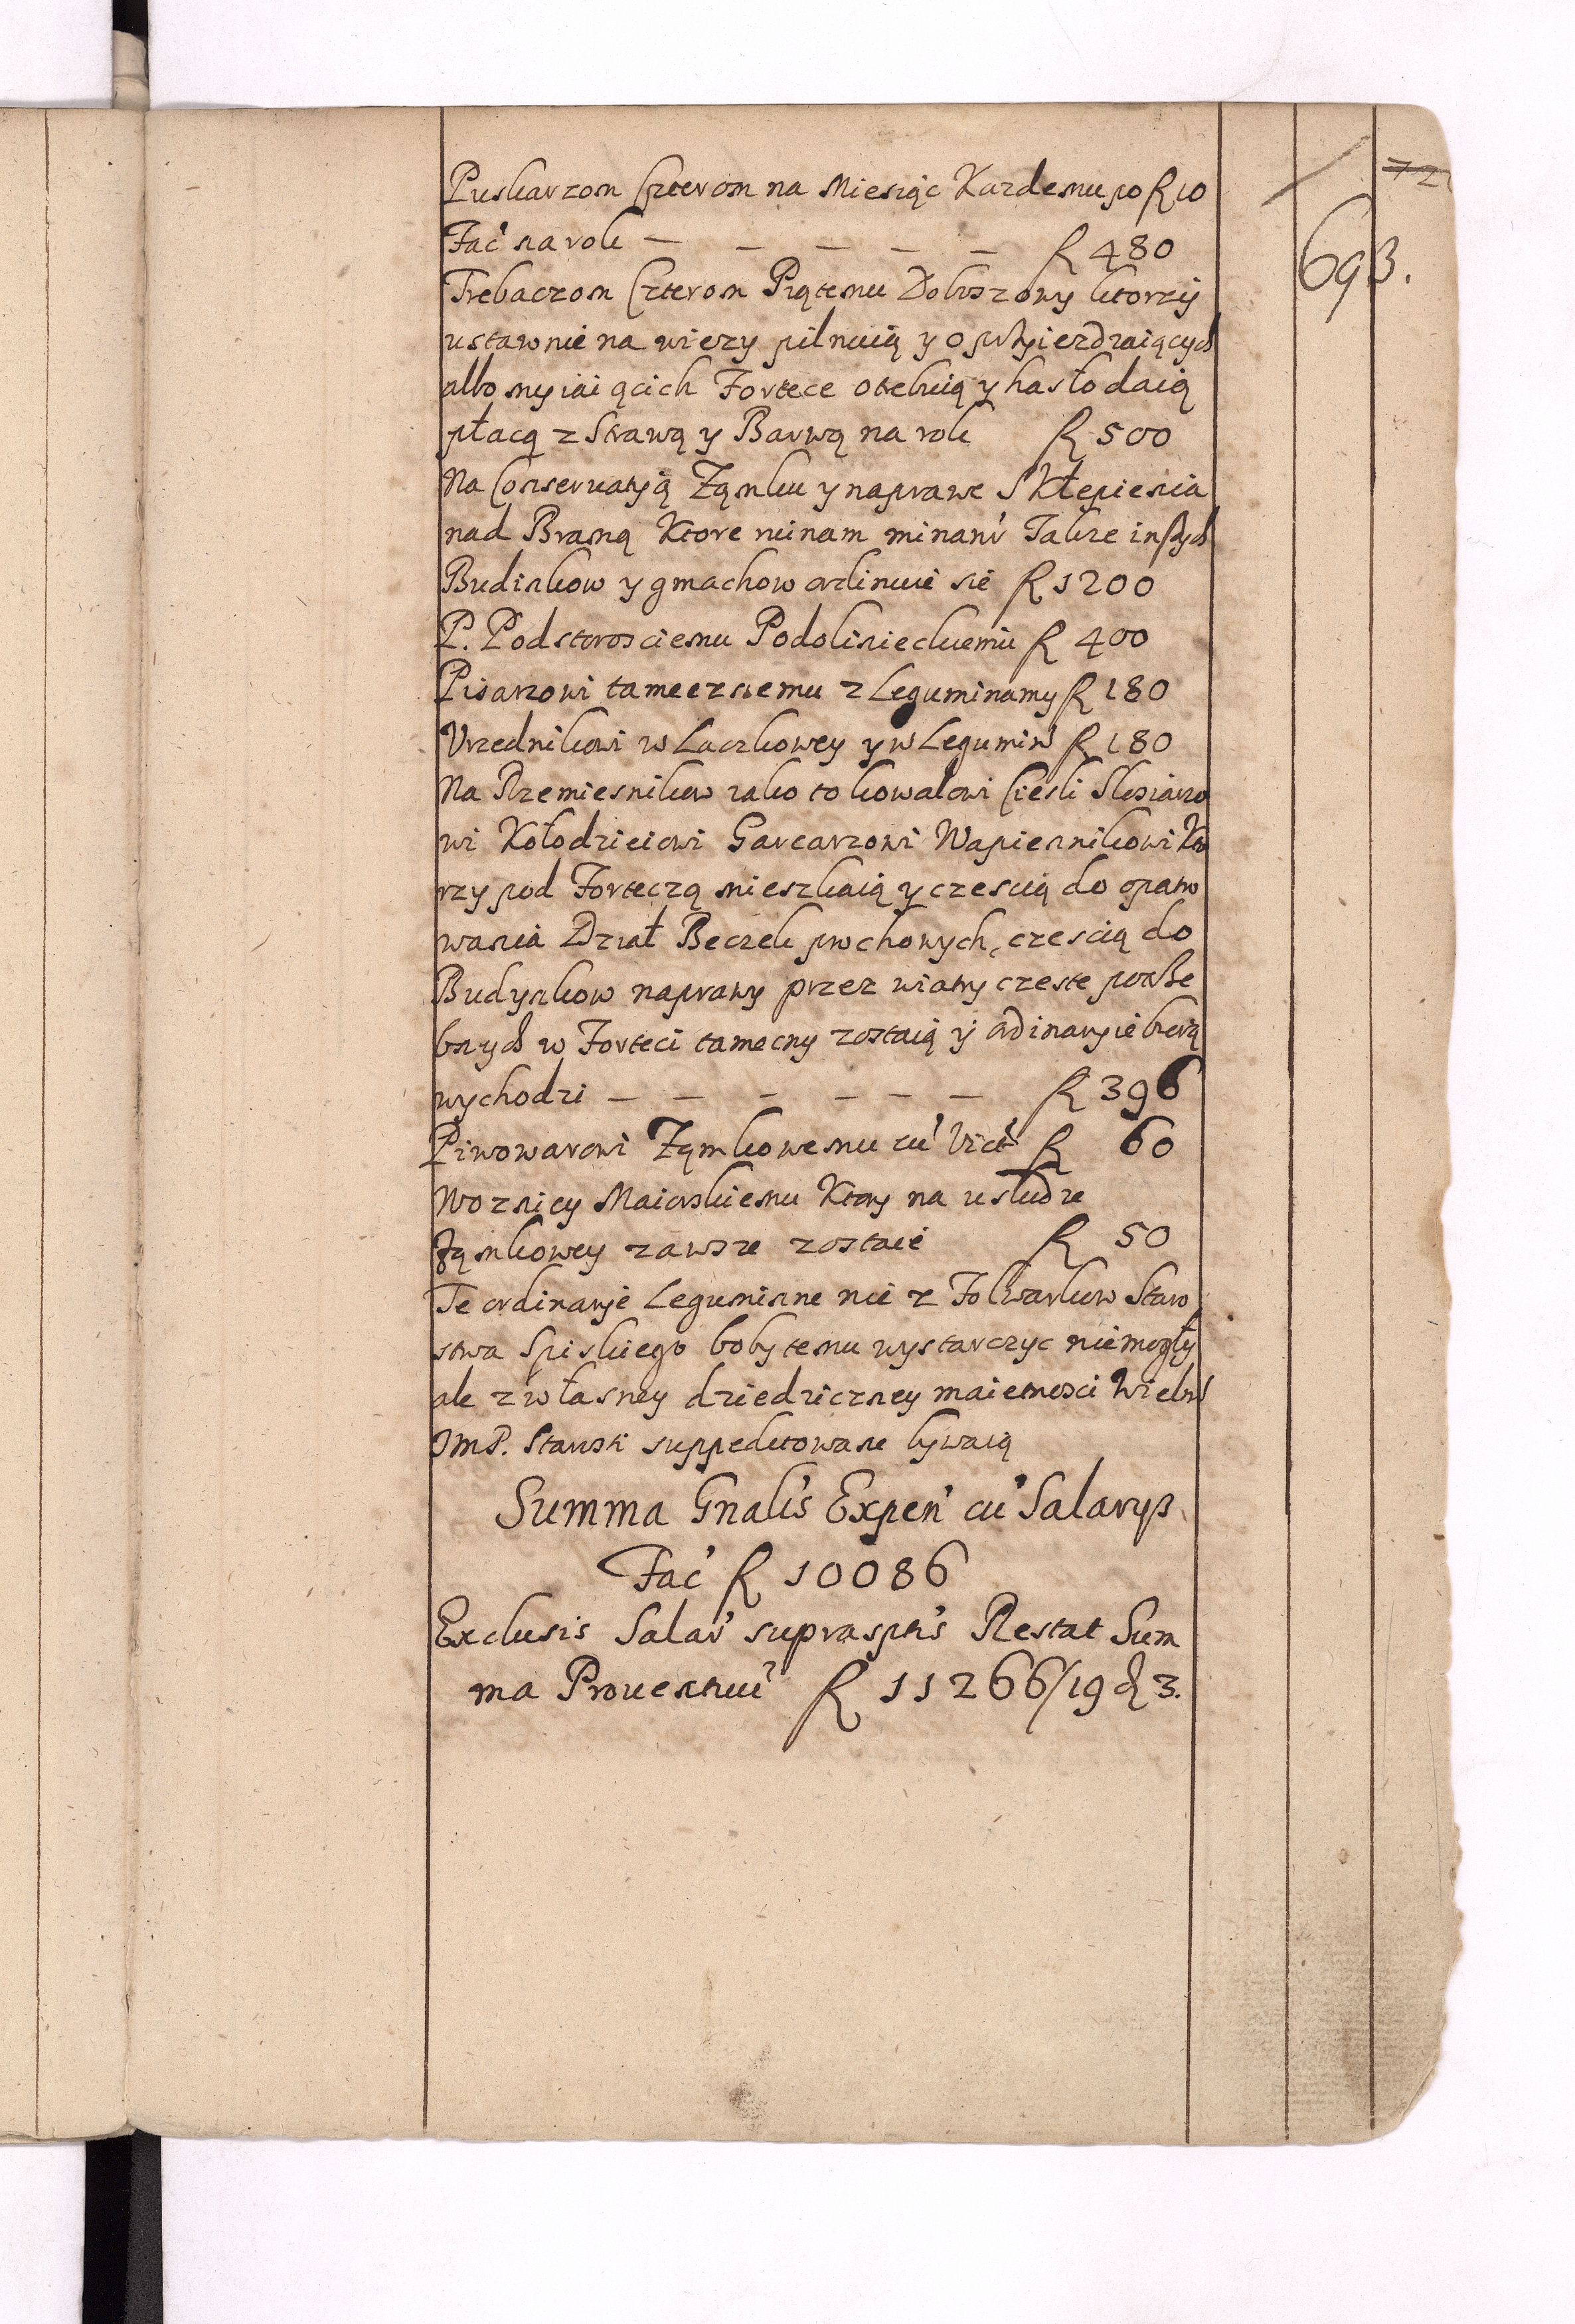 Puskarzom Czterom na Miesiąc Kazdemu po fl 10
Fac' na rok — — — — — fl 480
Trebaczom Czterom Piątemu Doboszowy ktorzÿ
ustawnie na wiezy pilnuią y o przyiezdzaiących
albo myiaiącich Fortece otrebuią y hasło daią
płacą z Strawą y Barwą na rok fl 500
Na Conservatyą Ząmku y naprawe Skłepienia
nad Bramą Ktore ruinam minatur Takze inszych
Budinkow y gmachow ordinuie sie fl 1200
P. Podstarosciemu Podolinieckiemu fl 400
Pisarzowi tamecznemu z Leguminamy fl 180
Vrzednikowi w Laczkowey y w Legumin' fl 180
Na Rzemiesnikow iako to kowalowi Ciesli Slosiarzo
wi Kołodzieiowi Garcarzowi Wapiennikowi Kto
rzy pod Forteczą mieszkaią y czescią do opatro
wania Dział Beczek prochowych, czescią do
Budynkow naprawy przez wiatry czeste potrze
bnych w Forteci tamecny zostaią ÿ ordinaryie biorą
wychodzi — — — — — — fl 396
Piwowarowi Ząmkowemu cu' Vict' fl 60
Woznicy Maiorskiemu Ktory na usłudze
Ząmkowey zawsze zostaie fl 50
Te ordinarye Leguminne nie z Folwarkow Staro
stwa Spiskiego boby temu wystarczyc nie mogły
ale z własney dziedziczney maietnosci Wielm'
JmP. Starosti suppeditowane bywaią
Summa Gnalis Expen' cu' Salaryis
Fac' fl 10086
Exclusis Salar' suprasptis Restat Sum
ma Proventuu' fl 11266/19 ₰ 3.
693.